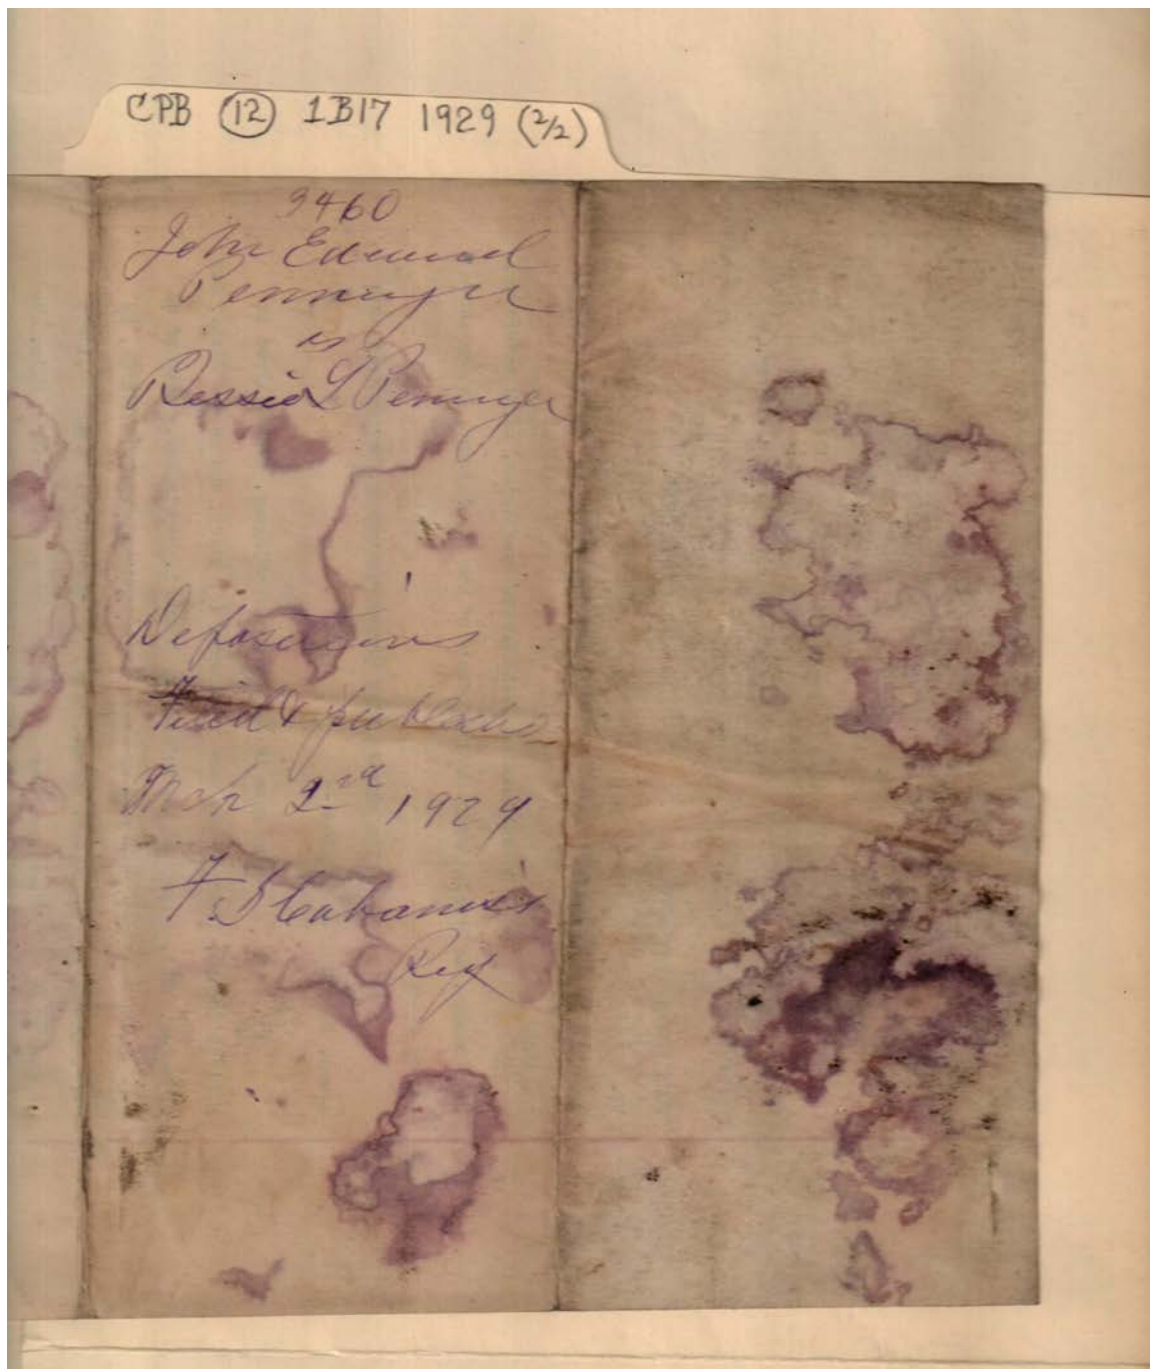 CPB (12) 1B17 1929 (2/2)
9460
John Edmund
Pennuyer
vs
Bessie L Pennuyer
Depositions
Filed & published
Mch 2nd 1929
F. B Cabaniss
Reg